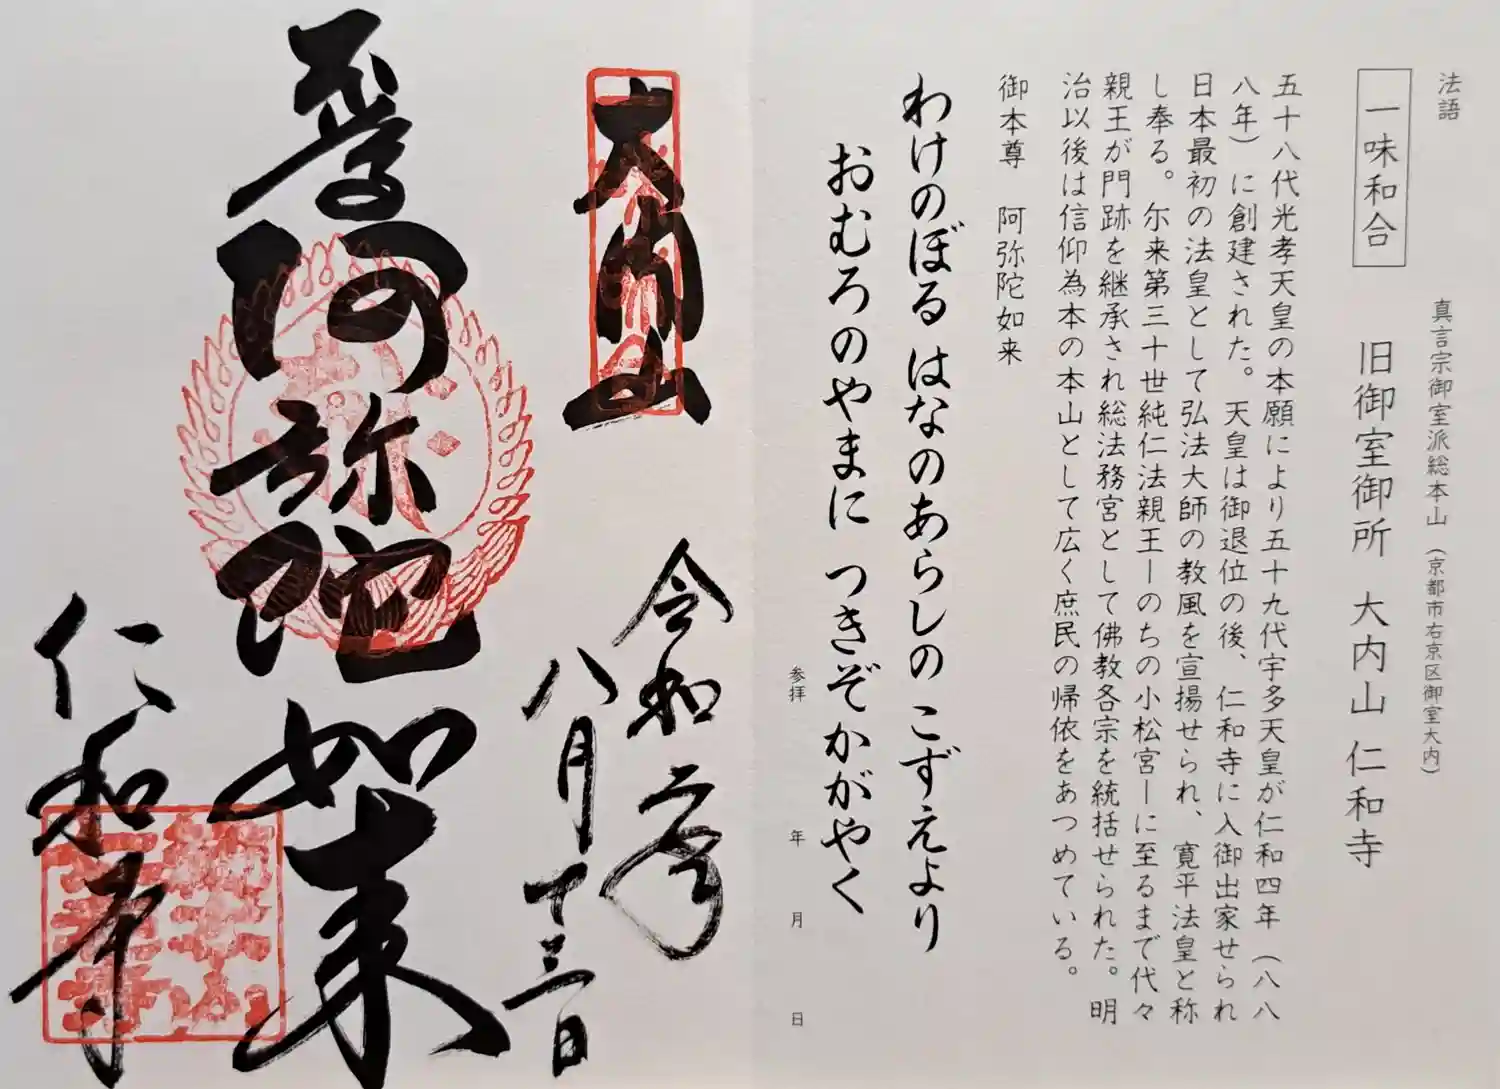 法語
一味和合
真言宗御室派総本山(京都市右京区御室大内)
旧御室御所 大内山 仁和寺
五十八代光孝天皇の本願により五十九代宇多天皇が仁和四年(八八
八年)に創建された。天皇は御退位の後、仁和寺に入御出家せられ
日本最初の法皇として弘法大師の教風を宣揚せられ、寛平法皇と称
し奉る。尓来第三十世純仁法親王ーのちの小松宮ーに至るまで代々
親王が門跡を継承され総法務宮として佛教各宗を統括せられた。明
治以後は信仰為本の本山として広く庶民の帰依をあつめている。
御本尊 阿弥陀如来
わけのぼる はなのあらしの こずえより
おむろのやまに つきぞかがやく
参拝 年 月 日
大内山
令和 年
八月十三日
阿弥陀如来
仁和寺